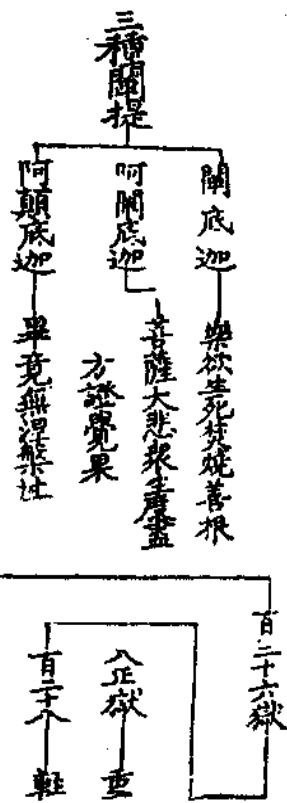 三種闡提
闡底迦
樂欲生死焚燒善根
阿闡底迦
菩薩大悲衆生度盡
方證覺果
阿顛底迦
畢竟無涅槃性
百二十六獄
八正獄
重
百二十八
軽